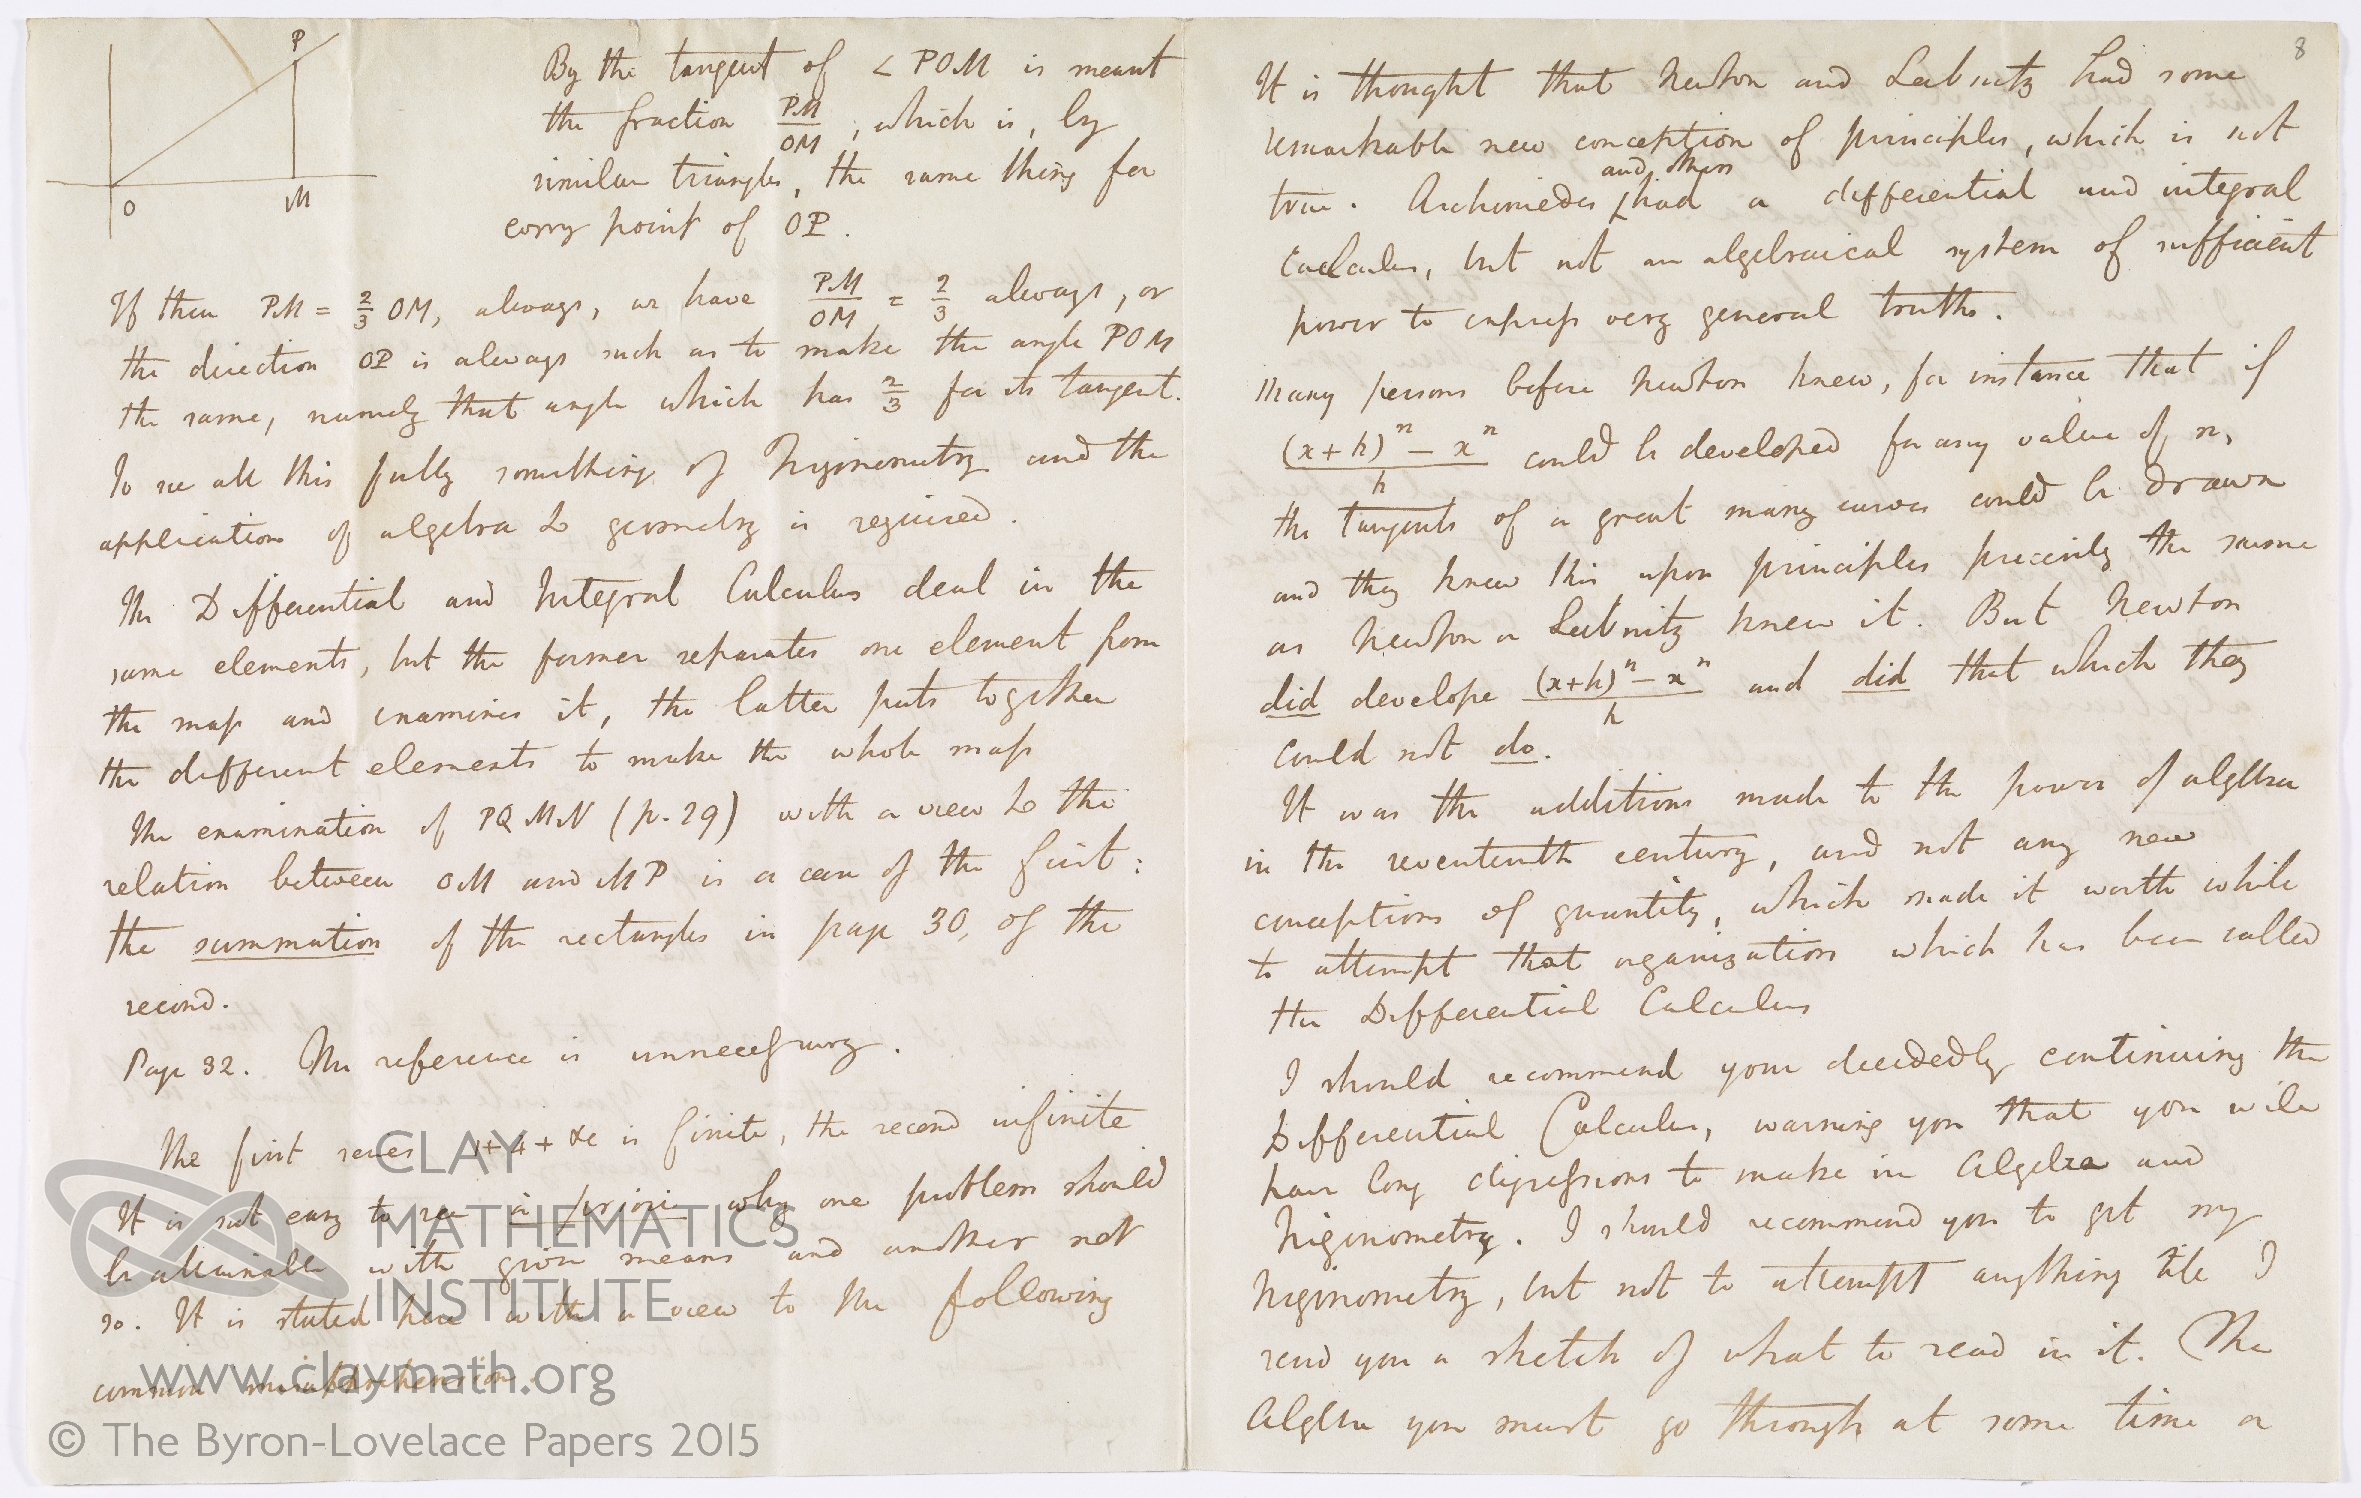 P
O
M
By the tangent of ∠ POM is meant
the fraction PM/OM, which is, by
similar triangles, the same thing for
every point of OP.
If then PM = 2/3 OM, always, we have PM/OM = 2/3 always, or
the direction OP is always such as to make the angle POM
the same, namely that angle which has 2/3 for its tangent.
To see all this fully something of Trigonometry and the
application of algebra to geometry is required.
The Differential and Integral Calculus deal in the
same elements, but the former separates one element from
the mass and examines it, the latter puts together
the different elements to make the whole mass
The examination of PQMN (p. 29) with a view to the
relation between OM and MP is a case of the first:
the summation of the rectangles in page 30, of the
second.
Page 32. The reference is unnecessary.
The first series 1+4+&c is finite, the second infinite
It is not easy to see à priori why one problem should
be attainable with given means and another not
so. It is stated here with a view to the following
common misapprehension.
8
It is thought that Newton and Leibnitz had some
remarkable new conception of principles, which is not
true. Archimedes and others had a differential and integral
calculus, but not an algebraical system of sufficient
power to express very general truths.
Many persons before Newton knew, for instance that if
((x+h)^n − x^n)/h could be developed for any value of n,
the tangents of a great many curves could be drawn
and they knew this upon principles precisely the same
as Newton or Leibnitz knew it. But Newton
did develope ((x+h)^n − x^n)/h and did that which they
could not do.
It was the additions made to the power of algebra
in the seventeenth century, and not any new
conceptions of quantity, which made it worth while
to attempt that organization which has been called
the Differential Calculus
I should recommend your decidedly continuing the
Differential Calculus, warning you that you will
have long digressions to make in Algebra and
Trigonometry. I should recommend you to get my
Trigonometry, but not to attempt anything till I
send you a sketch of what to read in it. The
Algebra you must go through at some time or
CLAY
MATHEMATICS
INSTITUTE
www.claymath.org
© The Byron-Lovelace Papers 2015